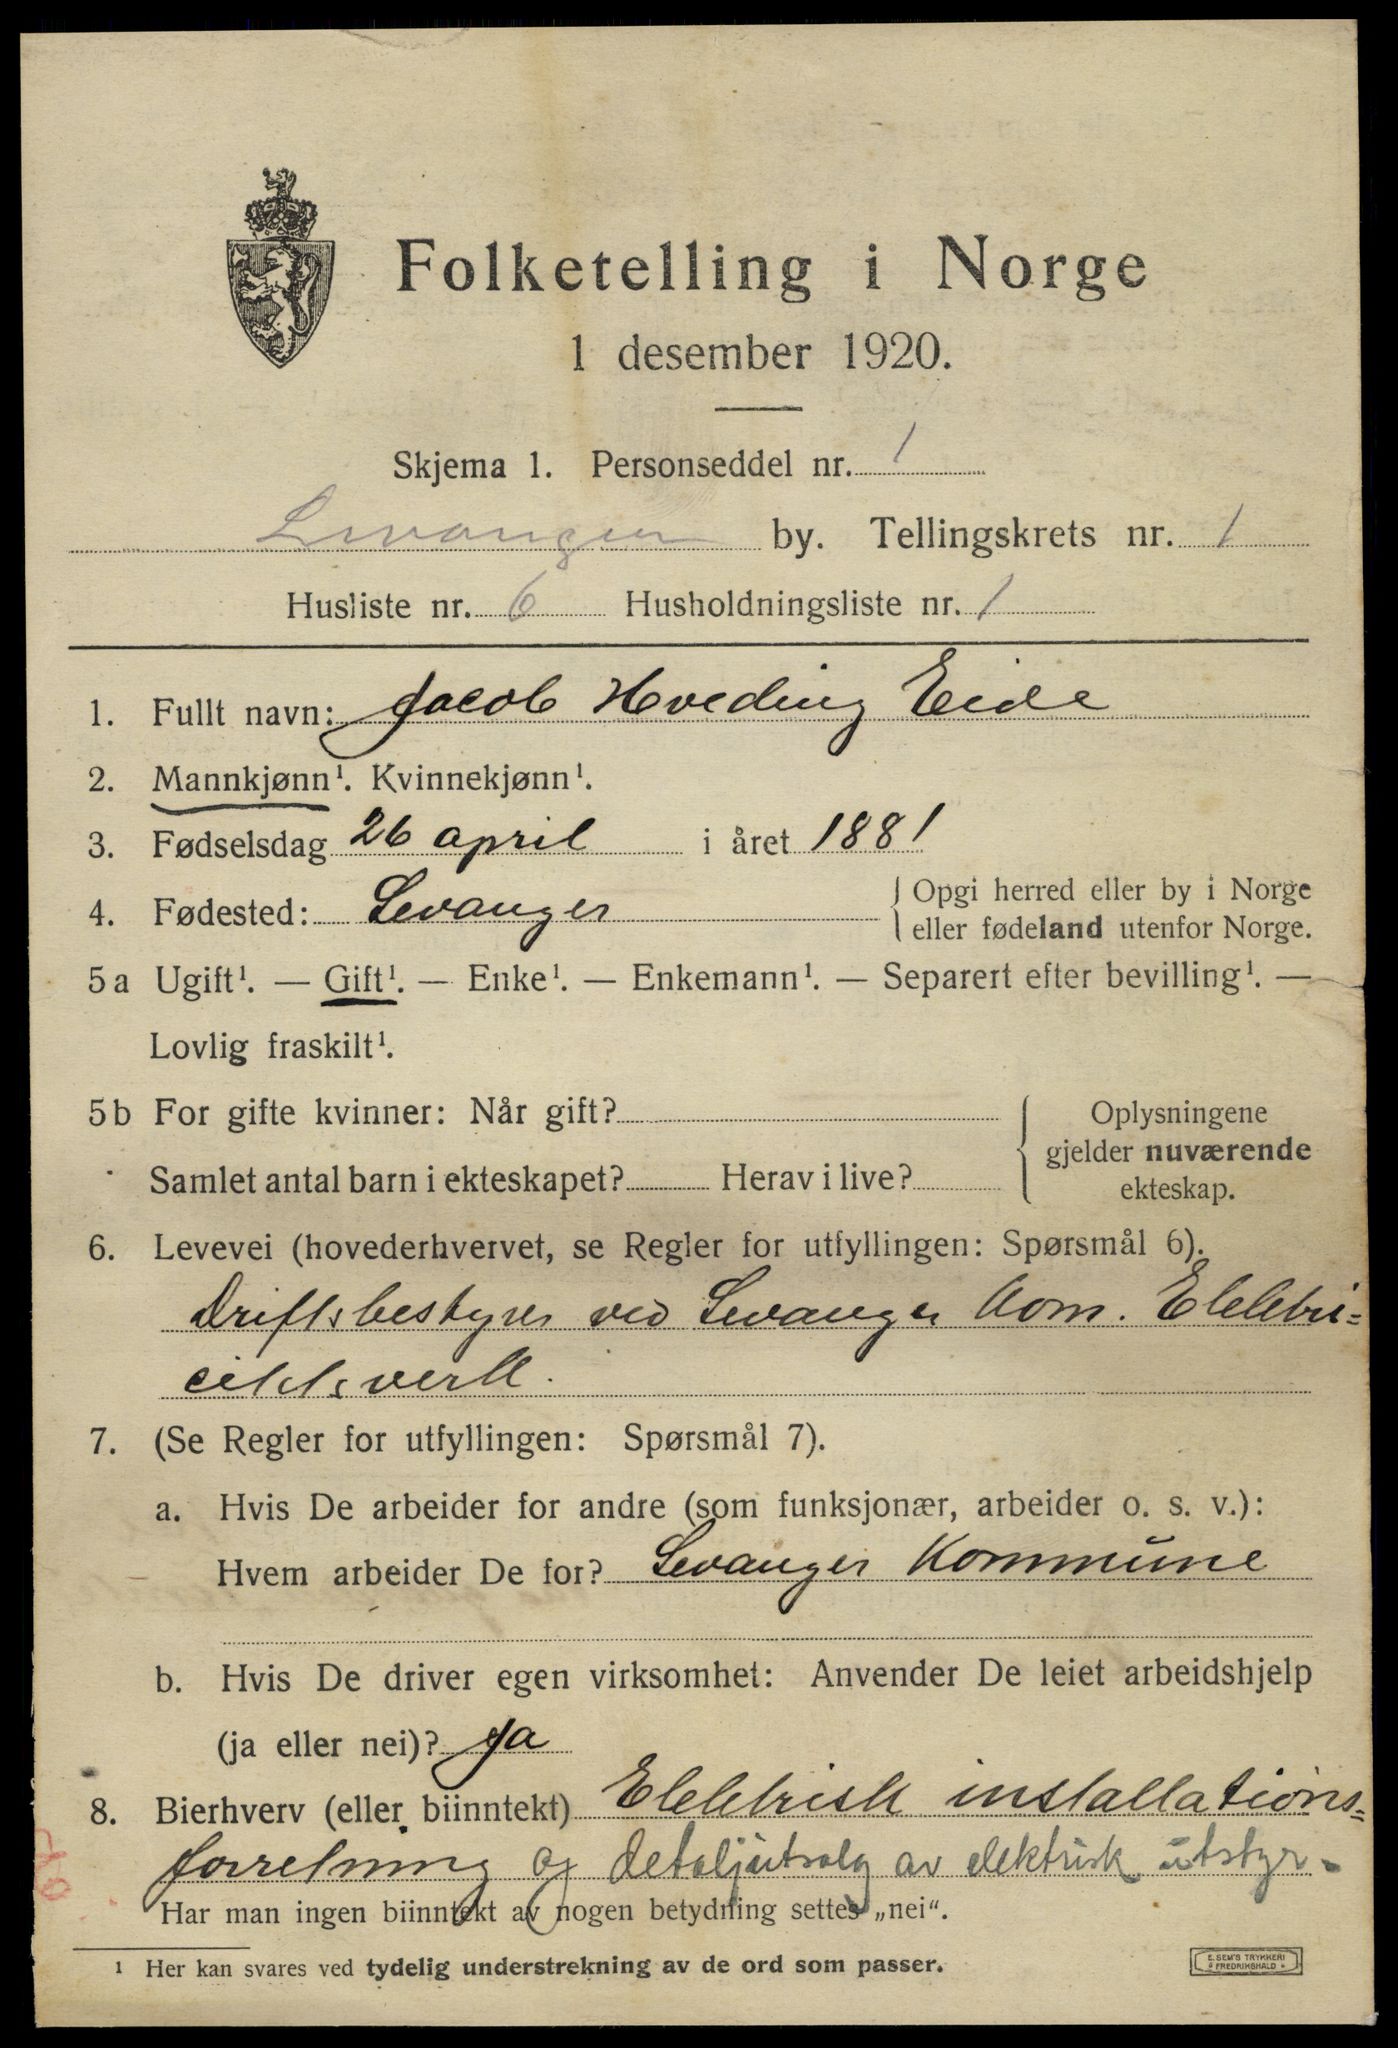 Folketelling i Norge
1 desember 1920.
Skjema 1. Personseddel nr. 1
Levanger by. Tellingskrets nr. 1
Husliste nr. 6 Husholdningsliste nr. 1
1. Fullt navn: Jacob Hveding Eide
2. Mannkjønn¹. Kvinnekjønn¹.
3. Fødselsdag 26 april i året 1881
4. Fødested: Levanger { Opgi herred eller by i Norge
eller fødeland utenfor Norge.
5a Ugift¹. — Gift¹. — Enke¹. — Enkemann¹. — Separert efter bevilling¹. —
Lovlig fraskilt¹.
5b For gifte kvinner: Når gift? { Oplysningene
gjelder nuværende
Samlet antal barn i ekteskapet? Herav i live?
ekteskap.
6. Levevei (hovederhvervet, se Regler for utfyllingen: Spørsmål 6).
Driftsbestyrer ved Levanger kom. Elektri=
citetsverk.
7. (Se Regler for utfyllingen: Spørsmål 7).
a. Hvis De arbeider for andre (som funksjonær, arbeider o. s. v.):
Hvem arbeider De for? Levanger Kommune
b. Hvis De driver egen virksomhet: Anvender De leiet arbeidshjelp
(ja eller nei)? Ja
8. Bierhverv (eller biinntekt) Elektrisk installations=
forretning og detaljutsalg av elektrisk utstyr.
Har man ingen biinntekt av nogen betydning settes „nei“.
¹ Her kan svares ved tydelig understrekning av de ord som passer.
E. SEM'S TRYKKERI
FREDRIKSHALD